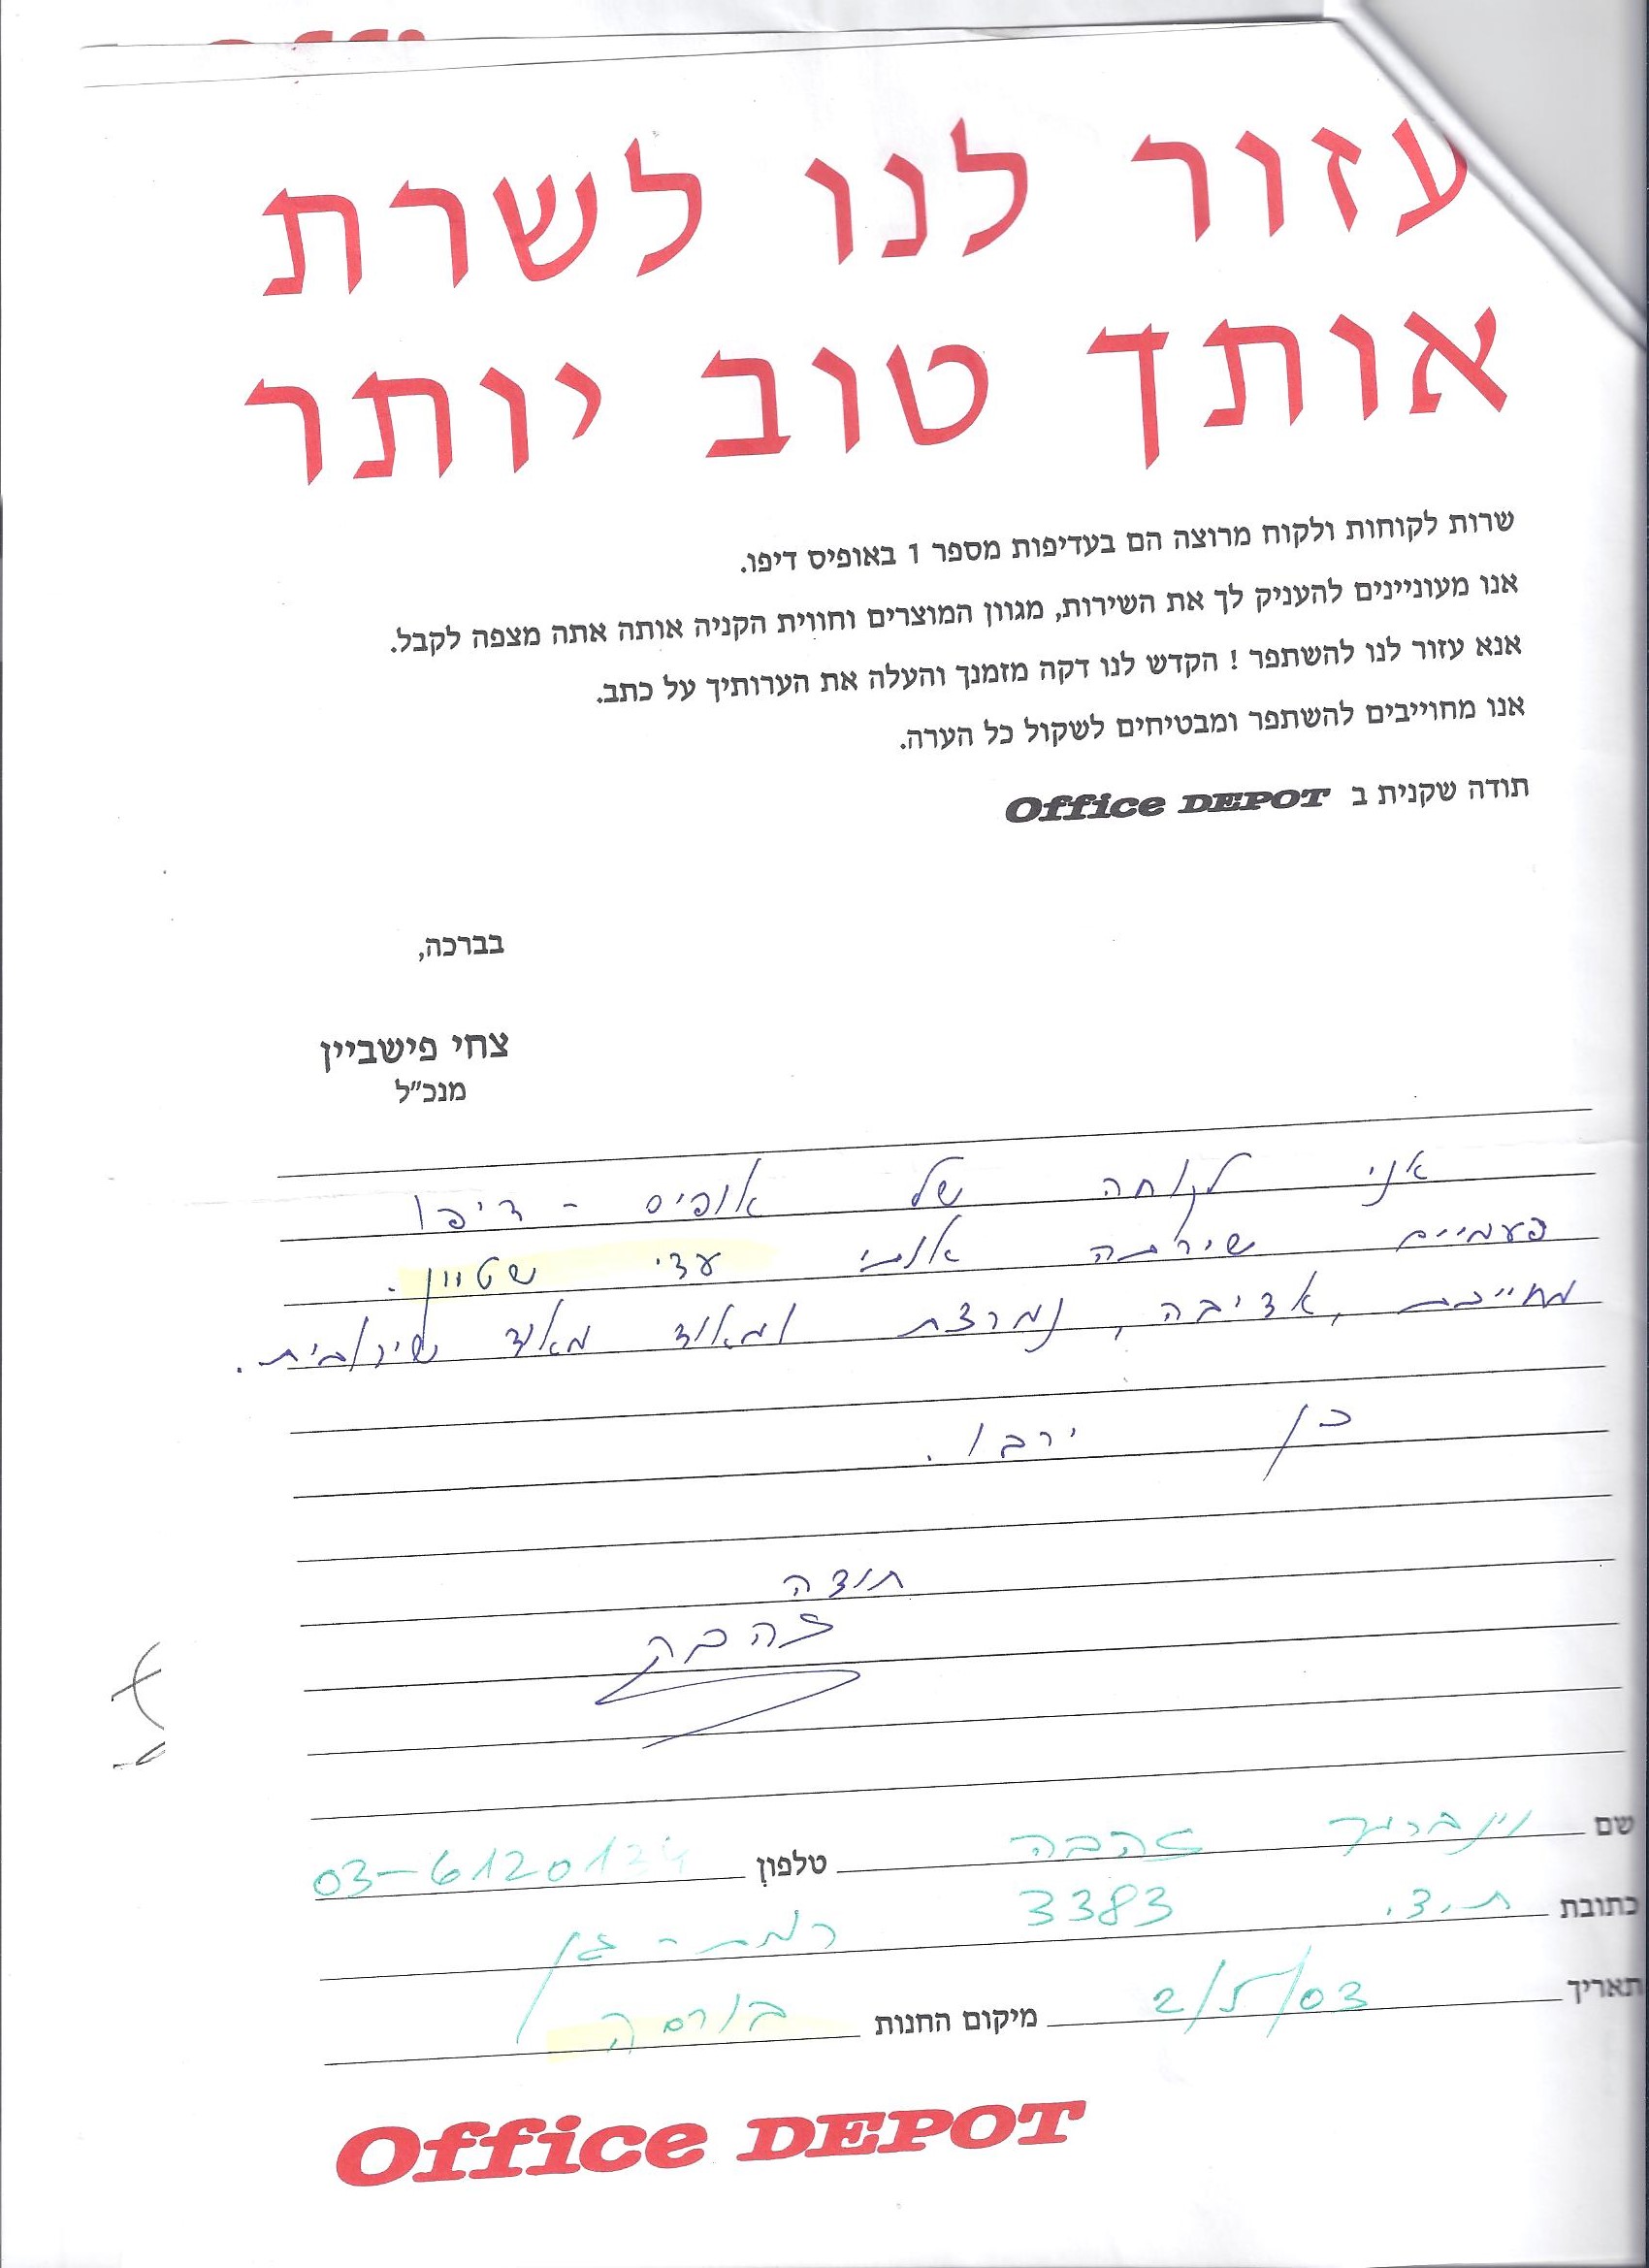 עזור לנו לשרת
אותך טוב יותר
שרות לקוחות ולקוח מרוצה הם בעדיפות מספר 1 באופיס דיפו.
אנו מעוניינים להעניק לך את השירות, מגוון המוצרים וחווית הקניה אותה אתה מצפה לקבל.
אנא עזור לנו להשתפר ! הקדש לנו דקה מזמנך והעלה את הערותיך על כתב.
אנו מחוייבים להשתפר ומבטיחים לשקול כל הערה.
תודה שקנית ב Office DEPOT
בברכה,
צחי פישביין
מנכ"ל
אני לקוחה של אופיס - דיפו
פעמיים שירתה אותי עדי שטיין.
מחייכת, אדיבה, נמרצת ומאוד מאוד שירותית.
כן ירבו.
תודה
זהבה
שם זהבה טלפון 03-6120134
כתובת ת.ד. 3383 רמת-גן
תאריך 2/5/03 מיקום החנות בורסה
Office DEPOT